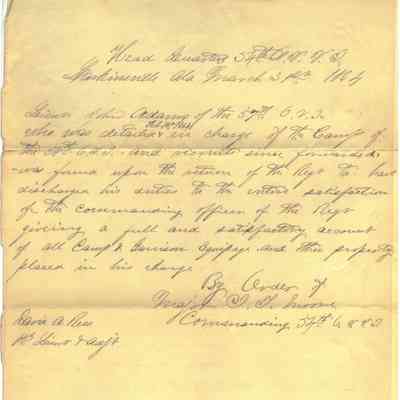 Head Quarters 54th O.V.V.I.
Ala March 31st 1864
Lieut John Adams of the 54th O.V.I.
who was detached in charge of the Camp of
the 54th O.V.I. and recruits since forwarded
was found upon the return of the Regt to have
discharged his duties to the entire satisfaction
of the commanding officer of the Regt
giveing a full and satisfactory account
of all Camp & Garrison Equipage and other property
placed in his charge
By Order of
Maj Moore
Commanding 54th O.V.V.I.
David A Rees
1st Lieut & Adjt